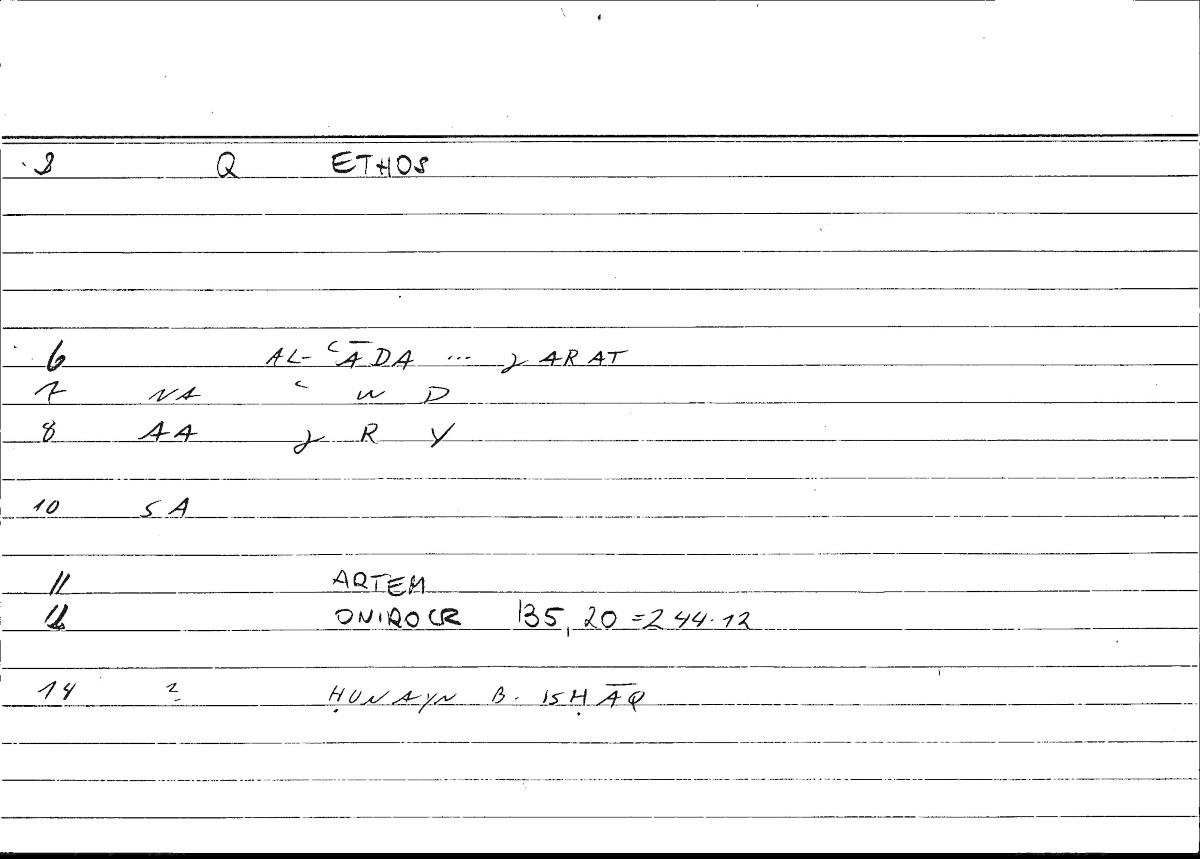 8 Q ETHOS
6 AL-ʿĀDA ... ɣARAT
7 NA ʿ W D
8 AA ɣ R Y
10 SA
11 ARTEM
12 ONIROCR 135,20=244.12
14 2 ḤUNAYN B. ISḤĀQ